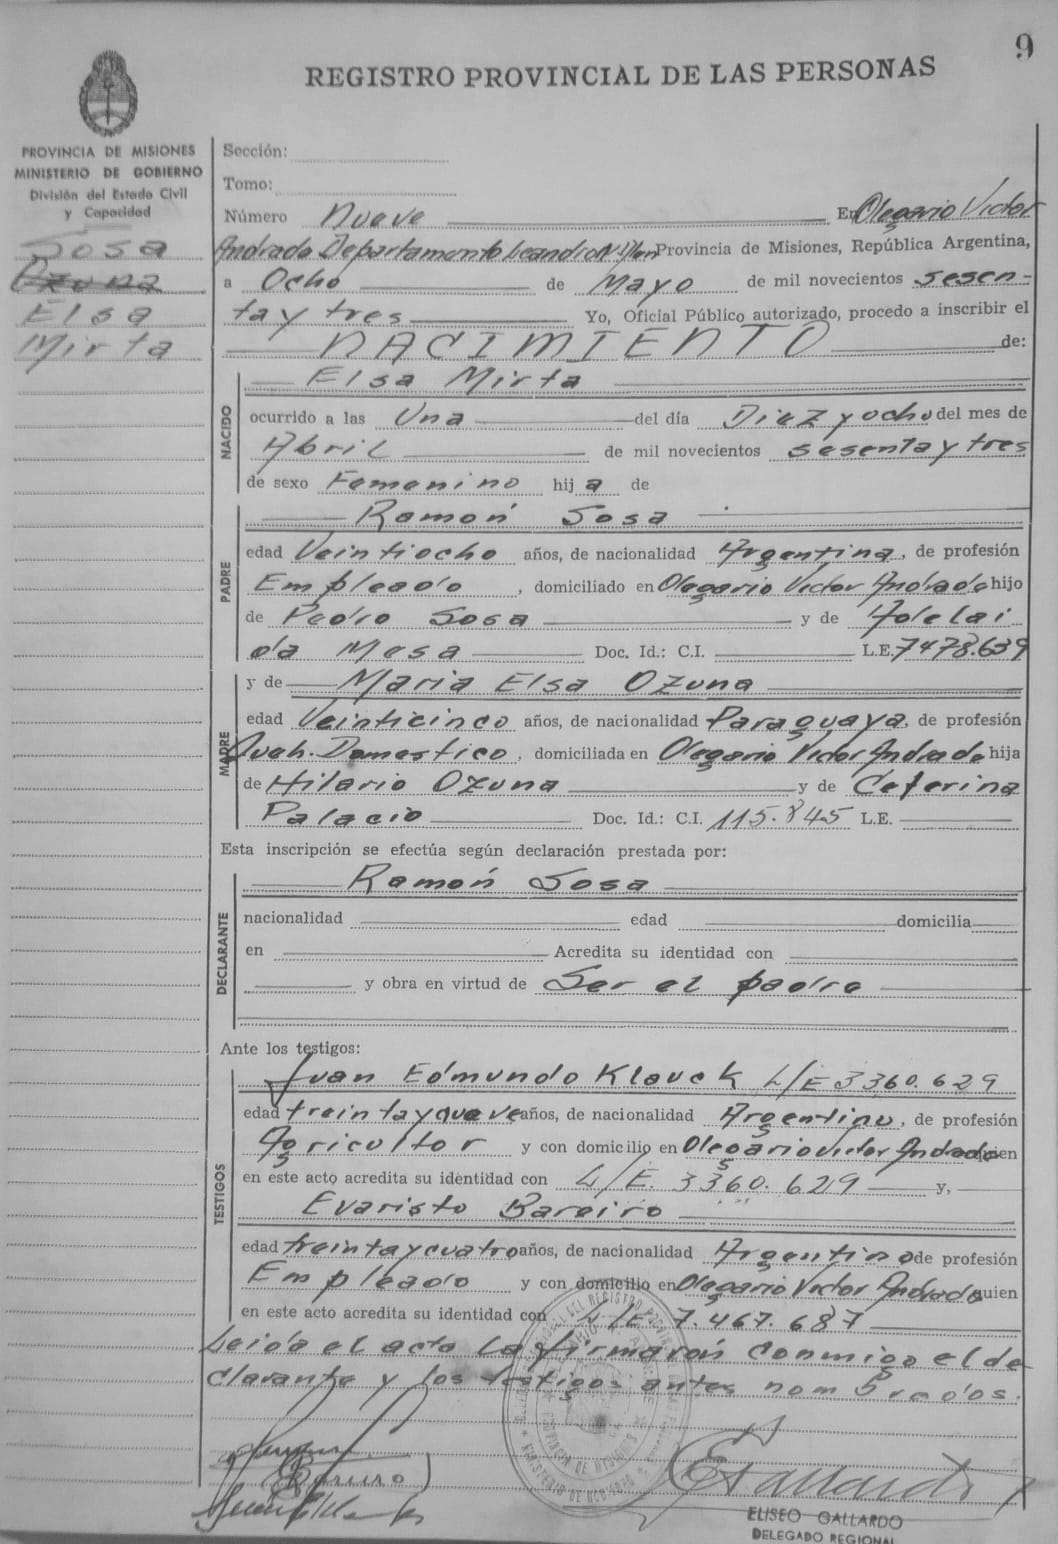 9
REGISTRO PROVINCIAL DE LAS PERSONAS
PROVINCIA DE MISIONES
MINISTERIO DE GOBIERNO
División del Estado Civil
y Capacidad
Sosa
Ozuna
Elsa
Mirta
Sección:
Tomo:
Número Nueve En Olegario Victor
Andrade Departamento Leandro N. Alem Provincia de Misiones, República Argentina,
a Ocho de Mayo de mil novecientos sesen-
ta y tres Yo, Oficial Público autorizado, procedo a inscribir el
NACIMIENTO de:
NACIDO
Elsa Mirta
ocurrido a las Una del día Diez y ocho del mes de
Abril de mil novecientos sesenta y tres
de sexo Femenino hij a de
PADRE
Ramón Sosa
edad Veintiocho años, de nacionalidad Argentina, de profesión
Empleado, domiciliado en Olegario Victor Andrade hijo
de Pedro Sosa y de Adelai
da Mesa Doc. Id.: C.I. L.E. 7478.639
MADRE
y de Maria Elsa Ozuna
edad Veinticinco años, de nacionalidad Paraguaya, de profesión
Queh. Domestico, domiciliada en Olegario Victor Andrade hija
de Hilario Ozuna y de Ceferina
Palacio Doc. Id.: C.I. 115.845 L.E.
Esta inscripción se efectúa según declaración prestada por:
DECLARANTE
Ramón Sosa
nacionalidad edad domicilia
en Acredita su identidad con
y obra en virtud de Ser el padre
Ante los testigos:
TESTIGOS
Juan Edmundo Klauck L/E 3360.629
edad treinta y nueve años, de nacionalidad Argentino, de profesión
Agricultor y con domicilio en Olegario Victor Andrade quien
en este acto acredita su identidad con L/E. 3360.629 y,
Evaristo Bareiro
edad treinta y cuatro años, de nacionalidad Argentino de profesión
Empleado y con domicilio en Olegario Victor Andrade quien
en este acto acredita su identidad con L/E. 7.467.687
Leida el acta la firmarón conmigo el de
clarante y los testigos antes nombrados.
ELISEO GALLARDO
DELEGADO REGIONAL